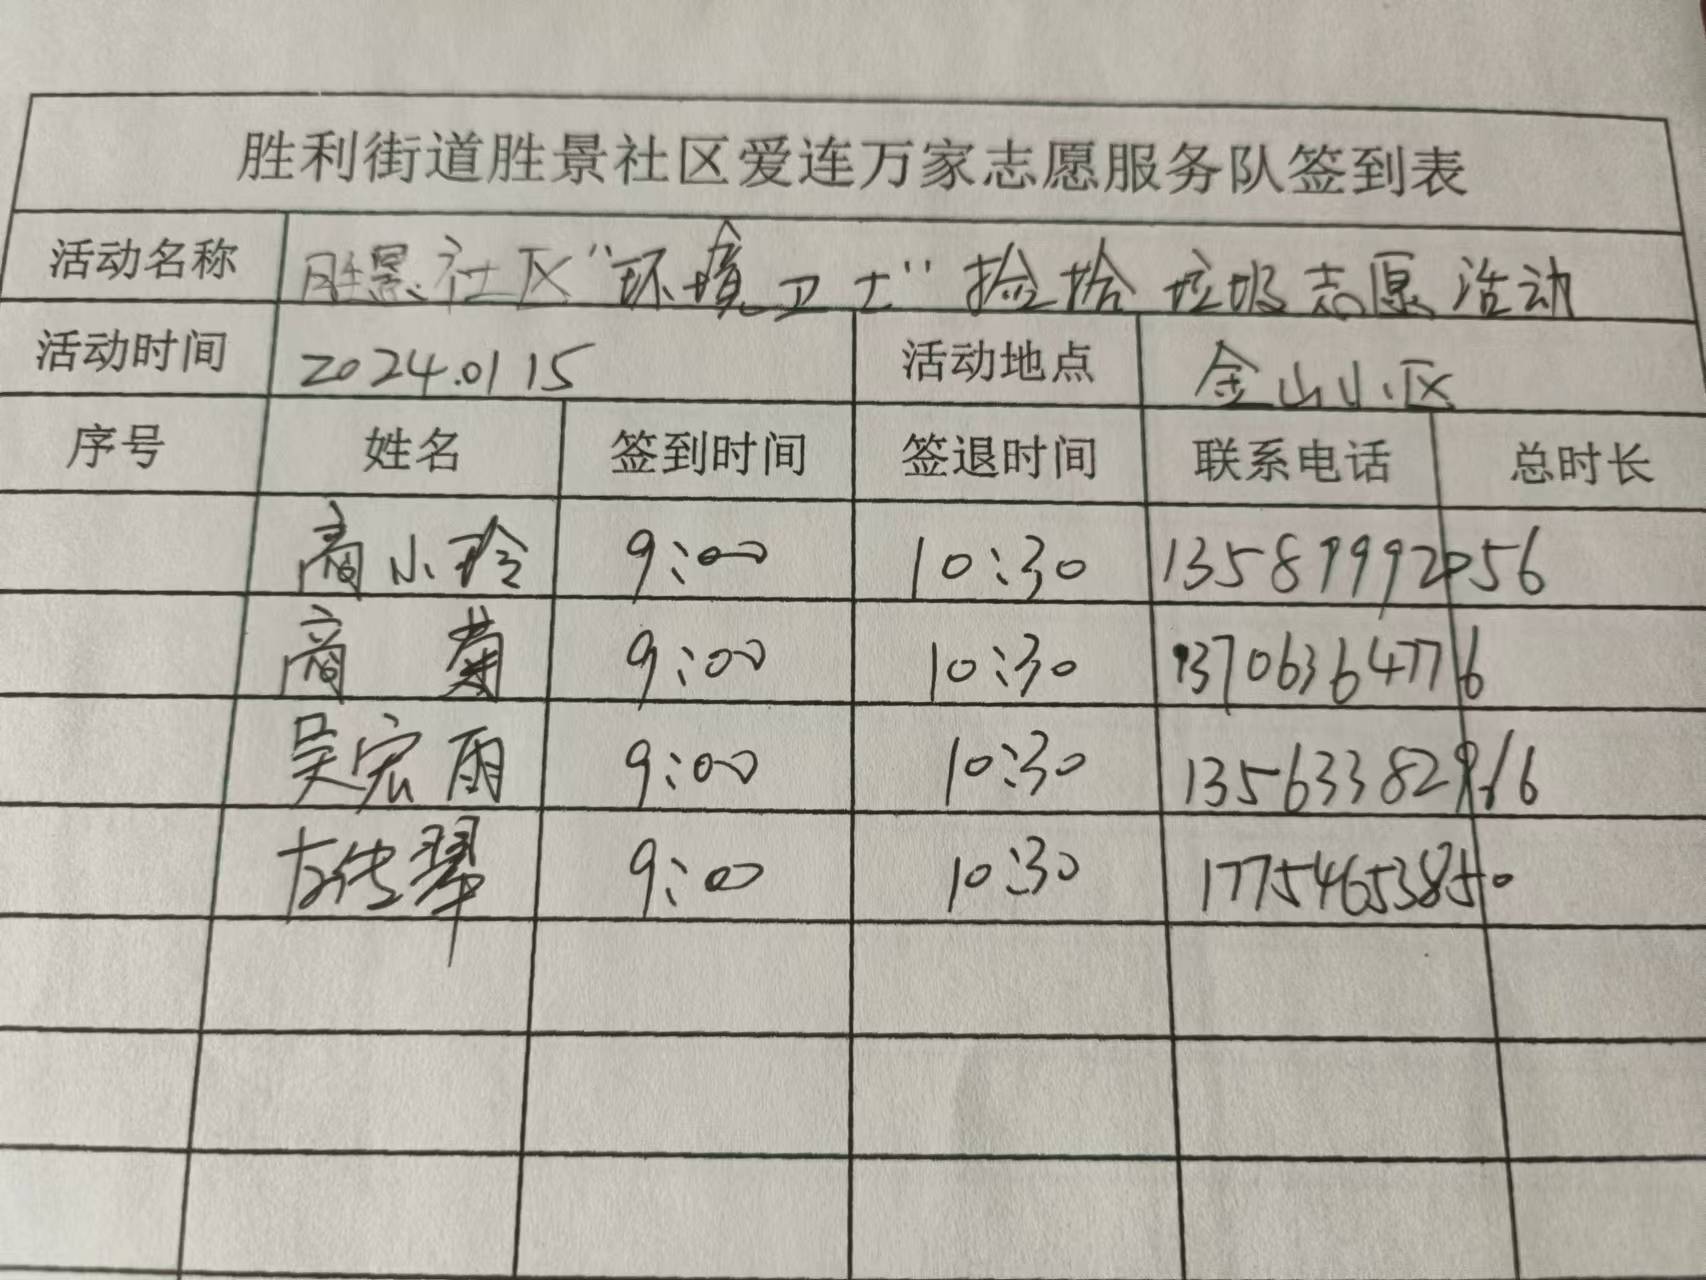 胜利街道胜景社区爱连万家志愿服务队签到表
活动名称 胜景社区“环境卫士”捡拾垃圾志愿活动
活动时间 2024.01 15 活动地点 金山小区
序号 姓名 签到时间 签退时间 联系电话 总时长
商小玲 9:00 10:30 13589992056
商 菊 9:00 10:30 13706364776
吴宏雨 9:00 10:30
9:00 10:30 17754653850